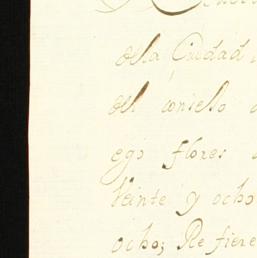 della Ciudad
del consello
ego flores
Veinte y ocho
ocho; Refiere